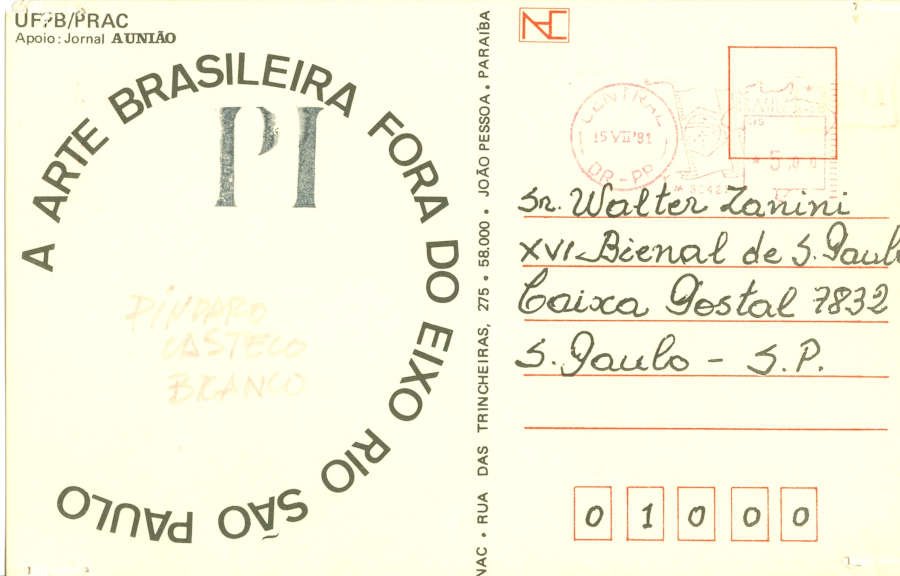 UFPB/PRAC
Apoio: Jornal A UNIÃO
A ARTE BRASILEIRA FORA DO EIXO RIO SÃO PAULO
PI
CASTELO
BRANCO
NAC. RUA DAS TRINCHEIRAS, 275. 58.000. JOÃO PESSOA. PARAÍBA
NAC
CENTRAL
15 VII '81
DR-PR
Sr. Walter Zanini
XVI Bienal de S. Paulo
Caixa Postal 7832
S. Paulo - S.P.
0 1 0 0 0